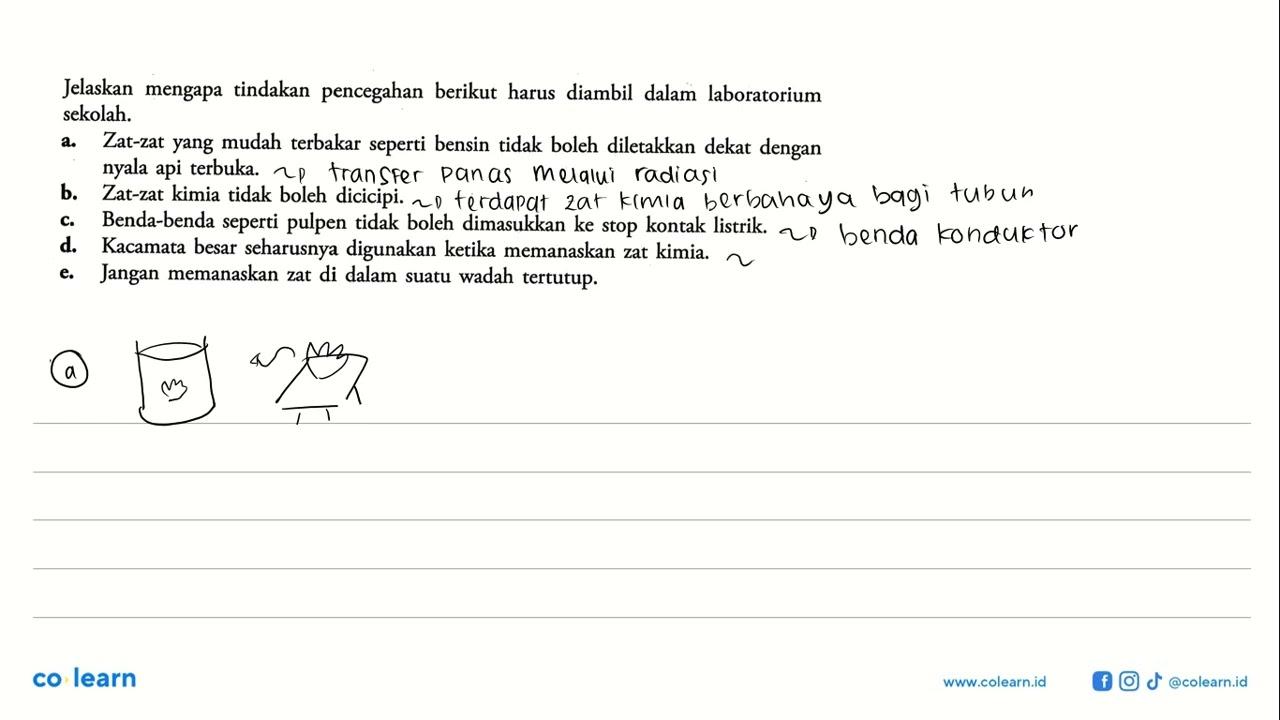 Jelaskan mengapa tindakan pencegahan berikut harus diambil dalam laboratorium
sekolah.
a. Zat-zat yang mudah terbakar seperti bensin tidak boleh diletakkan dekat dengan
nyala api terbuka. transfer panas melalui radiasi
b. Zat-zat kimia tidak boleh dicicipi. terdapat zat kimia berbahaya bagi tubuh
c. Benda-benda seperti pulpen tidak boleh dimasukkan ke stop kontak listrik. benda konduktor
d. Kacamata besar seharusnya digunakan ketika memanaskan zat kimia.
e. Jangan memanaskan zat di dalam suatu wadah tertutup.
a
co learn
www.colearn.id
@colearn.id